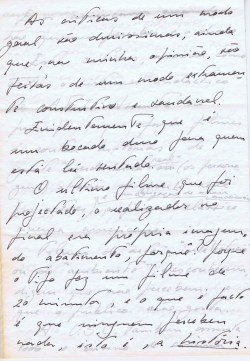 As críticas de um modo
geral, são duríssimas, ainda
que, na minha opinião, são
feitas de um modo extremamen
te construtivo e saudável.
Evidentemente que é
um bocado duro para quem
está lá sentado.
O último filme que foi
projectado, o realizador no
final era a própria imagem
do abatimento, porquê? porque
o tipo faz um filme de
20 minutos, e o que é facto
é que ninguém percebeu
nada, isto é, a história.